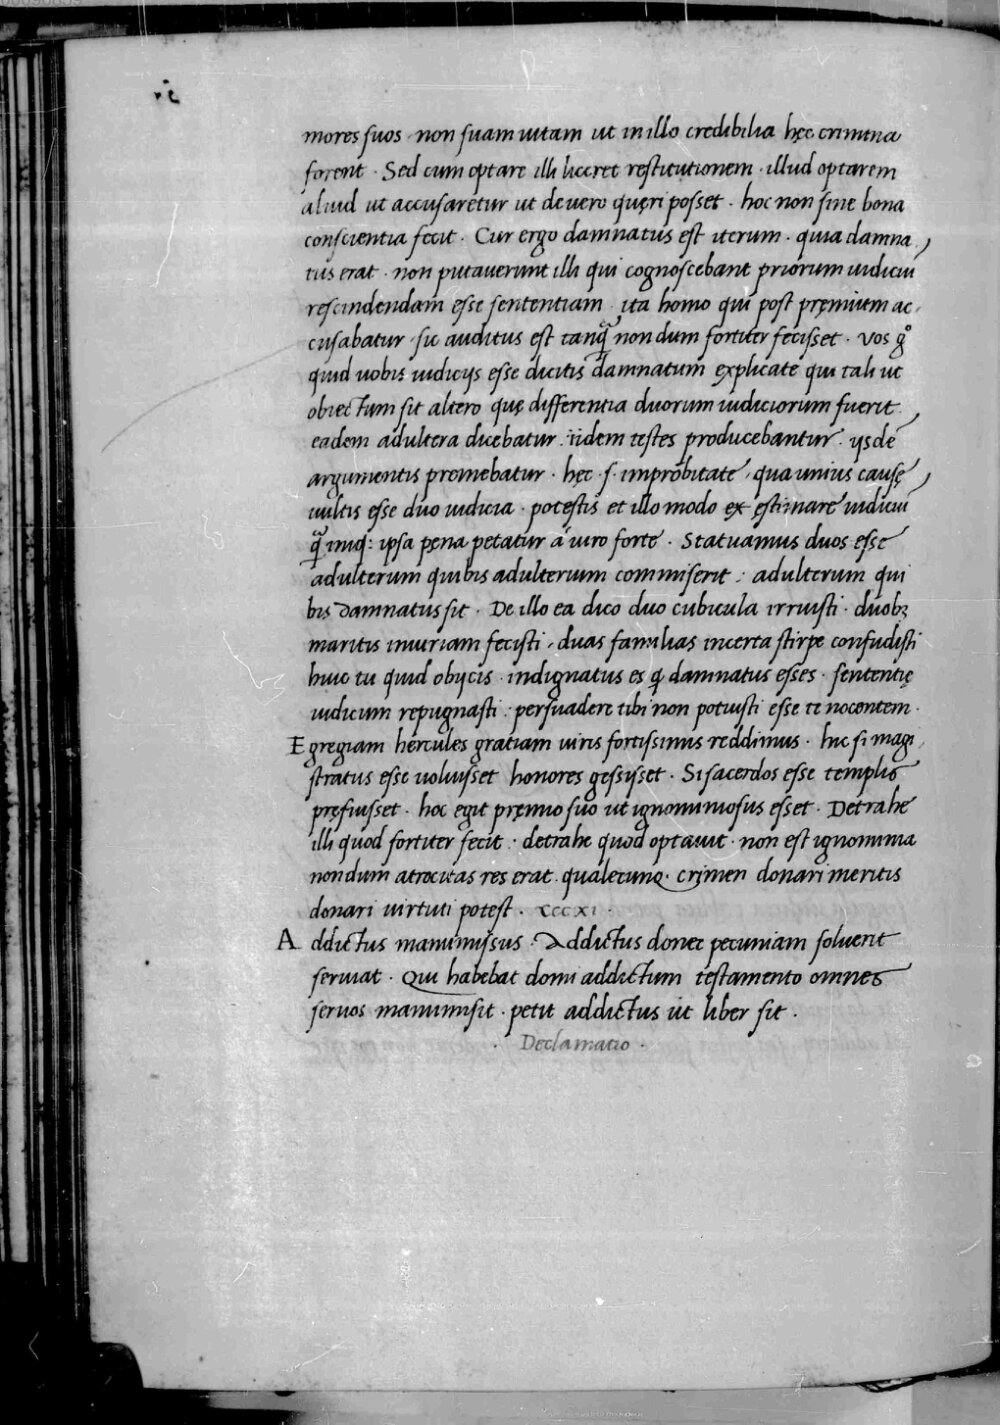 mores suos · non suam uitam ut in illo credibilia hęc crimina
forent · Sed cum optare illi liceret restitutionem · illud optarem
aliud ut accusaretur ut de uero quęri posset · hoc non sine bona
conscientia fecit · Cur ergo damnatus est iterum · quia damna
tus erat · non putauerunt illi qui cognoscebant priorum iudiciū
rescindendam esse sententiam · ita homo qui post pręmium ac
cusabatur · sic auditus est tanq̄ nondum fortiter fecisset · Vos gͦ
quid uobis iudicijs esse dicitis damnatum explicate qui tali ut
obiectum sit altero quę differentia duorum iudiciorum fuerit
eadem adultera dicebatur · iidem testes producebantur · ijsdē
argumentis premebatur · hęc · s · improbitate · qua unius causę
uultis esse duo iudicia · potestis et illo modo exęstimare iudiciū
q̄ iniq: ipsa pęna petatur a uiro forte · Statuamus duos esse
adulterum qui bis adulterium commiserit : adulterum qui
bis damnatus sit · De illo ea dico duo cubicula irruisti · duobꝫ
maritis iniuriam fecisti · duas familias incerta stirpe confudisti
huic tu quid obijcis · indignatus es ꝙ damnatus esses · sententię
iudicum repugnasti : persuadere tibi non potuisti esse te nocentem ·
Egregiam hercules gratiam uiris fortissimis reddimus · hic si magi
stratus esse uoluisset honores gessisset · Si sacerdos esse templis
pręfuisset · hoc egit pręmio suo ut ignominiosus esset · Detrahe
illi quod fortiter fecit · detrahe quod optauit · non est ignominia
nondum atrocitas res erat qualecunq · crimen donari meritis
donari uirtuti potest · cccxi ·
Addictus manumissus · Addictus donec pecuniam soluerit
seruiat · Qui habebat domi addictum testamento omnes
seruos manumisit · petit addictus ut liber sit ·
· Declamatio ·